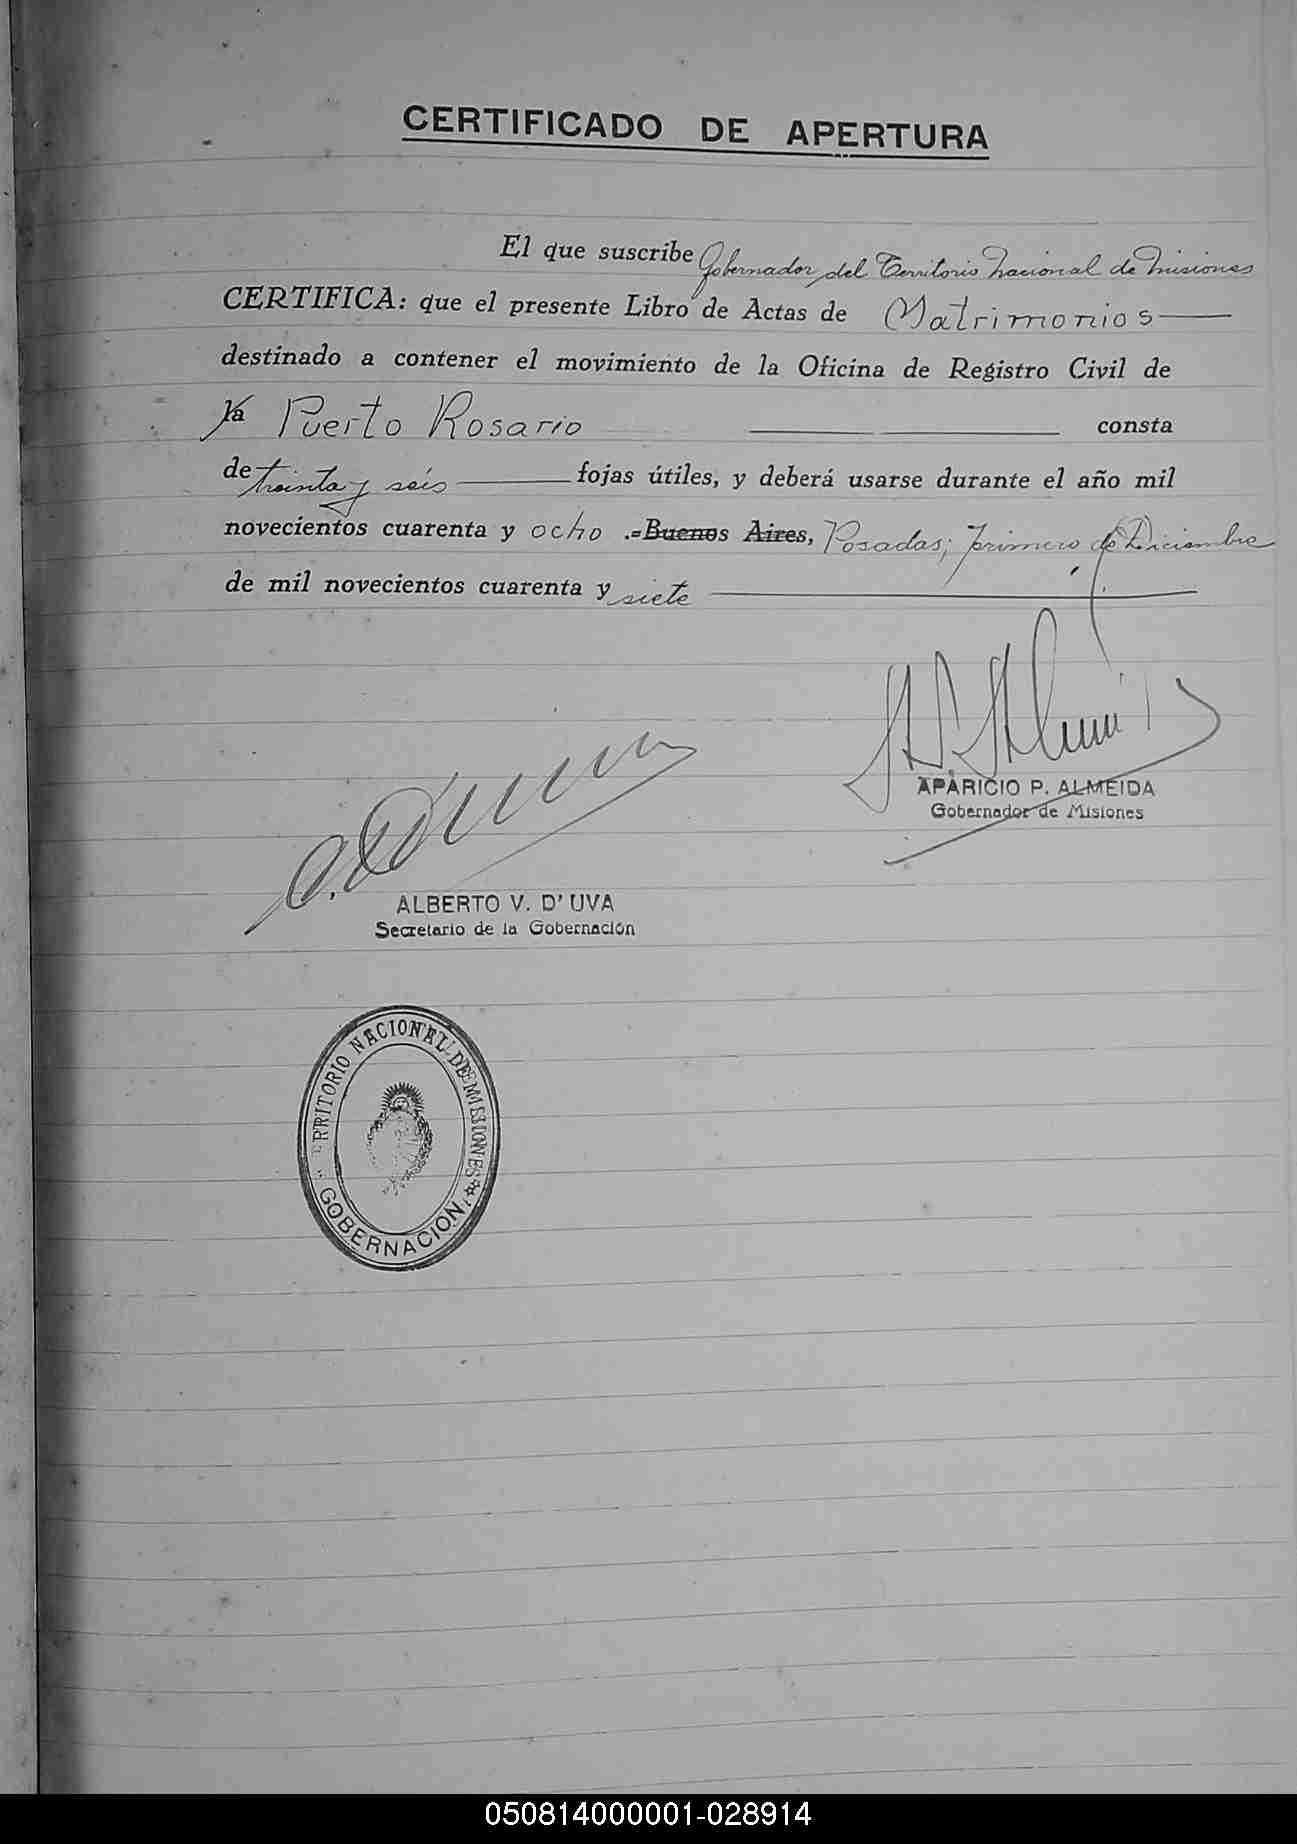 CERTIFICADO DE APERTURA
El que suscribe Gobernador del Territorio Nacional de Misiones
CERTIFICA: que el presente Libro de Actas de Matrimonios
destinado a contener el movimiento de la Oficina de Registro Civil de
la Puerto Rosario consta
de treinta y seis fojas útiles, y deberá usarse durante el año mil
novecientos cuarenta y ocho .=Buenos Aires, Posadas, primero de Diciembre
de mil novecientos cuarenta y siete
APARICIO P. ALMEIDA
Gobernador de Misiones
ALBERTO V. D'UVA
Secretario de la Gobernación
ERRITORIO NACIONAL DE MISIONES
GOBERNACION
050814000001-028914